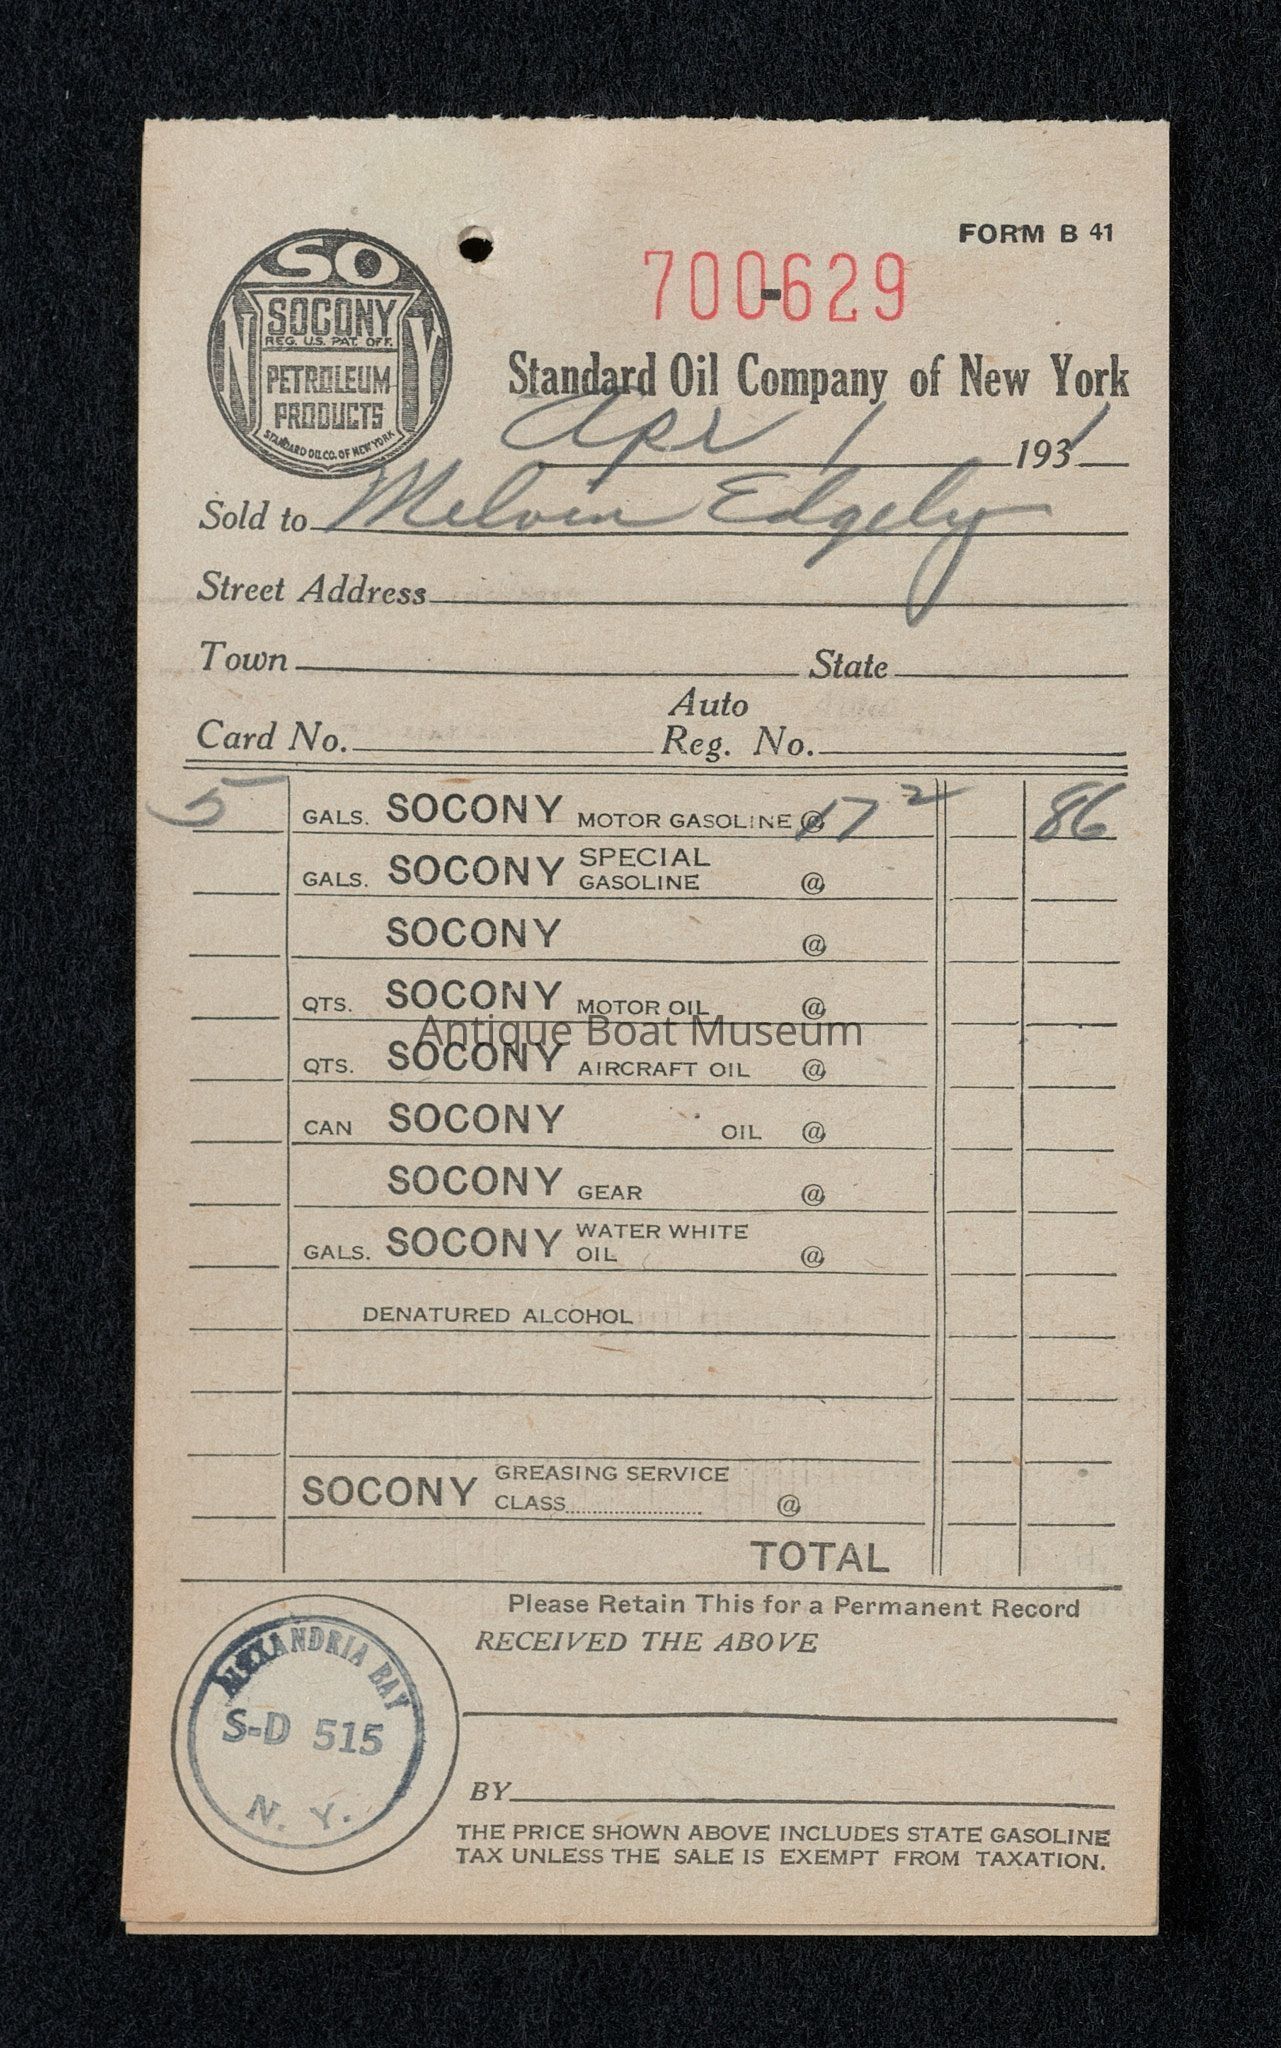 FORM B 41
SO
N Y
SOCONY
REG. U.S. PAT. OFF.
PETROLEUM
PRODUCTS
STANDARD OIL CO. OF NEW YORK
700-629
Standard Oil Company of New York
Apr 1 1931
Sold to Melvin Edgely
Street Address
Town State
Card No. Auto Reg. No.
5 GALS. SOCONY MOTOR GASOLINE @ 17 2 86
GALS. SOCONY SPECIAL GASOLINE @
SOCONY @
QTS. SOCONY MOTOR OIL @
Antique Boat Museum
QTS. SOCONY AIRCRAFT OIL @
CAN SOCONY OIL @
SOCONY GEAR @
GALS. SOCONY WATER WHITE OIL @
DENATURED ALCOHOL
SOCONY GREASING SERVICE CLASS @
TOTAL
Please Retain This for a Permanent Record
RECEIVED THE ABOVE
ALEXANDRIA BAY
S-D 515
N. Y.
BY
THE PRICE SHOWN ABOVE INCLUDES STATE GASOLINE
TAX UNLESS THE SALE IS EXEMPT FROM TAXATION.